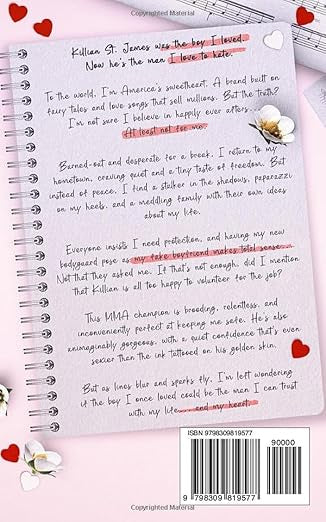 Copyrighted Material
Killian St. James was the boy I loved.
Now he's the man I love to hate.
To the world, I'm America's sweetheart. A brand built on
fairy tales and love songs that sell millions. But the truth?
I'm not sure I believe in happily ever afters...
At least not for me.
Burned-out and desperate for a break, I return to my
hometown, craving quiet and a tiny taste of freedom. But
instead of peace, I find a stalker in the shadows, paparazzi
on my heels, and a meddling family with their own ideas
about my life.
Everyone insists I need protection, and having my new
bodyguard pose as my fake boyfriend makes total sense...
Not that they asked me. If that's not enough, did I mention
that Killian is all too happy to volunteer for the job?
This MMA champion is brooding, relentless, and
inconveniently perfect at keeping me safe. He's also
unimaginably gorgeous, with a quiet confidence that's even
sexier than the ink tattooed on his golden skin.
But as lines blur and sparks fly, I'm left wondering
if the boy I once loved could be the man I can trust
with my life... and my heart.
ISBN 9798309819577
90000
9 798309 819577
Copyrighted Material